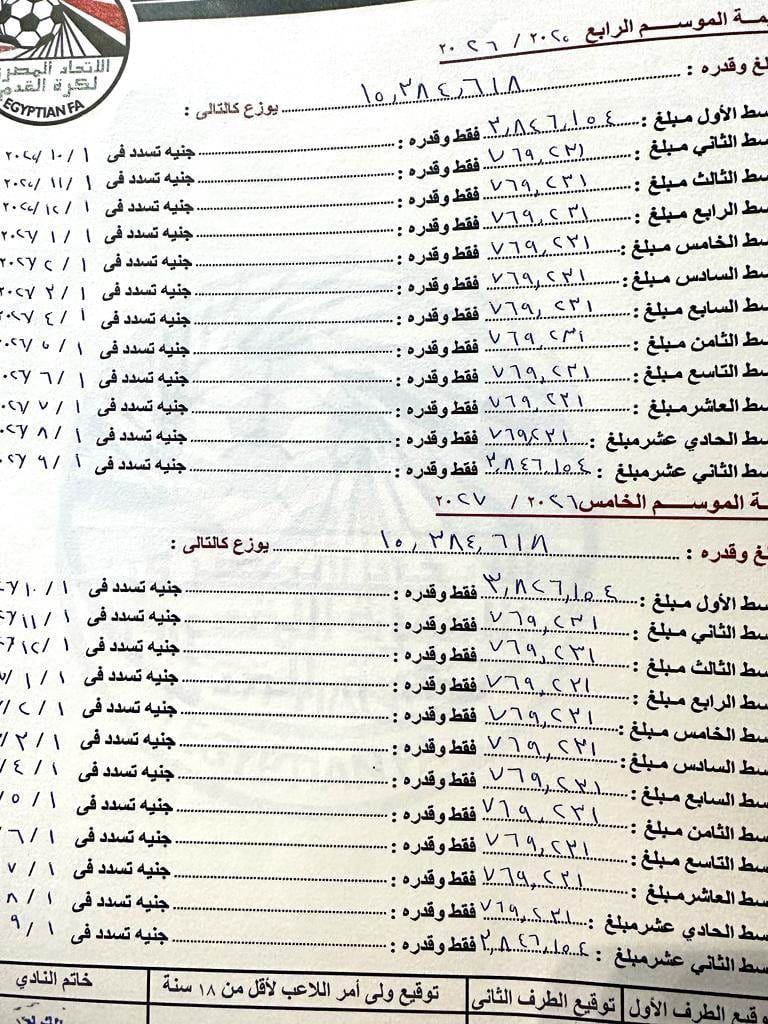 الاتحاد المصرى
لكرة القدم
EGYPTIAN FA
الموسم الرابع ٢٠٢٥ / ٢٠٢٦
وقدره : ١٥,٣٨٤,٦١٨ يوزع كالتالى :
الأول مبلغ : ٣,٨٤٦,١٥٤ فقط وقدره : جنيه تسدد فى ١ / ١٠ /
الثاني مبلغ : ٧٦٩,٢٣١ فقط وقدره : جنيه تسدد فى ١ / ١١ /
الثالث مبلغ : ٧٦٩,٢٣١ فقط وقدره : جنيه تسدد فى ١ / ١٢ /
الرابع مبلغ : ٧٦٩,٢٣١ فقط وقدره : جنيه تسدد فى ١ / ١ /
الخامس مبلغ : ٧٦٩,٢٣١ فقط وقدره : جنيه تسدد فى ١ / ٢ /
السادس مبلغ : ٧٦٩,٢٣١ فقط وقدره : جنيه تسدد فى ١ / ٣ /
السابع مبلغ : ٧٦٩,٢٣١ فقط وقدره : جنيه تسدد فى ١ / ٤ /
الثامن مبلغ : ٧٦٩,٢٣١ فقط وقدره : جنيه تسدد فى ١ / ٥ /
التاسع مبلغ : ٧٦٩,٢٣١ فقط وقدره : جنيه تسدد فى ١ / ٦ /
العاشر مبلغ : ٧٦٩,٢٣١ فقط وقدره : جنيه تسدد فى ١ / ٧ /
الحادي عشر مبلغ : ٧٦٩٢٣١ فقط وقدره : جنيه تسدد فى ١ / ٨ /
الثاني عشر مبلغ : ٣,٨٤٦,١٥٤ فقط وقدره : جنيه تسدد فى ١ / ٩ /
الموسم الخامس ٢٠٢٦ / ٢٠٢٧
وقدره : ١٥,٣٨٤,٦١٨ يوزع كالتالى :
الأول مبلغ : ٣,٨٤٦,١٥٤ فقط وقدره : جنيه تسدد فى ١ / ١٠ /
الثاني مبلغ : ٧٦٩,٢٣١ فقط وقدره : جنيه تسدد فى ١ / ١١ /
الثالث مبلغ : ٧٦٩,٢٣١ فقط وقدره : جنيه تسدد فى ١ / ١٢ /
الرابع مبلغ : ٧٦٩,٢٣١ فقط وقدره : جنيه تسدد فى ١ / ١ /
الخامس مبلغ : ٧٦٩,٢٣١ فقط وقدره : جنيه تسدد فى ١ / ٢ /
السادس مبلغ : ٧٦٩,٢٣١ فقط وقدره : جنيه تسدد فى ١ / ٣ /
السابع مبلغ : ٧٦٩,٢٣١ فقط وقدره : جنيه تسدد فى ١ / ٤ /
الثامن مبلغ : ٧٦٩,٢٣١ فقط وقدره : جنيه تسدد فى ١ / ٥ /
التاسع مبلغ : ٧٦٩,٢٣١ فقط وقدره : جنيه تسدد فى ١ / ٦ /
العاشر مبلغ : ٧٦٩,٢٣١ فقط وقدره : جنيه تسدد فى ١ / ٧
الحادي عشر مبلغ : ٧٦٩,٢٣١ فقط وقدره : جنيه تسدد فى ١ / ٨
الثاني عشر مبلغ : ٣,٨٤٦,١٥٤ فقط وقدره : جنيه تسدد فى ١ / ٩
توقيع الطرف الأول توقيع الطرف الثانى توقيع ولى أمر اللاعب لأقل من ١٨ سنة خاتم النادي